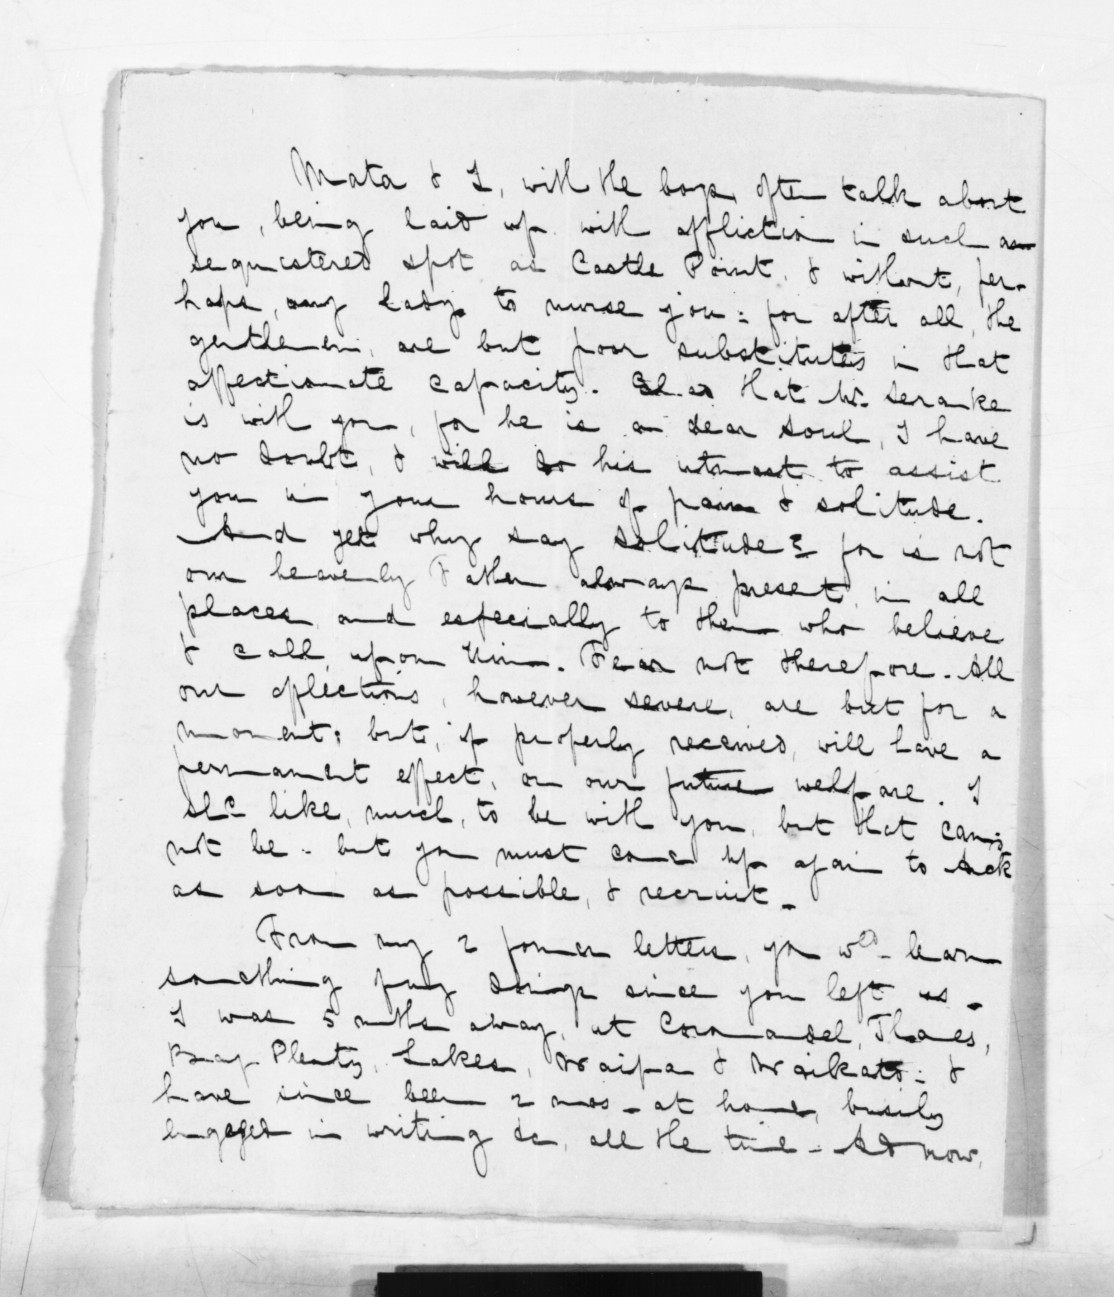 Mata & I, with the boys, often talk about
you, being laid up with affliction in such a
sequestered spot as Castle Point, & without, per-
haps, any lady to nurse you: for after all, the
gentlemen, are but poor substitutes in that
affectionate capacity. that Mr.
is with you, for he is a dear soul, I have
no doubt, & will do his utmost to assist
you in your hours of pain & solitude.
And yet why say solitude? for is not
our heavenly Father always present, in all
places, and especially to them who believe
& call upon Him. Fear not therefore. All
our afflictions, however severe, are but for a
moment; but, if properly received, will have a
permanent effect, on our future welfare. I
shd like, much, to be with you, but that can-
not be - but you must come up again to Auck
as soon as possible, & recruit -
From my 2 former letters, you wd learn
something of my doings since you left us -
I was 5 mths away, at Coromandel, Thames,
Bay Plenty, Lakes, Waipa & Waikato: &
have since been 2 mos - at home, busily
engaged in writing &c, all the time - And now,